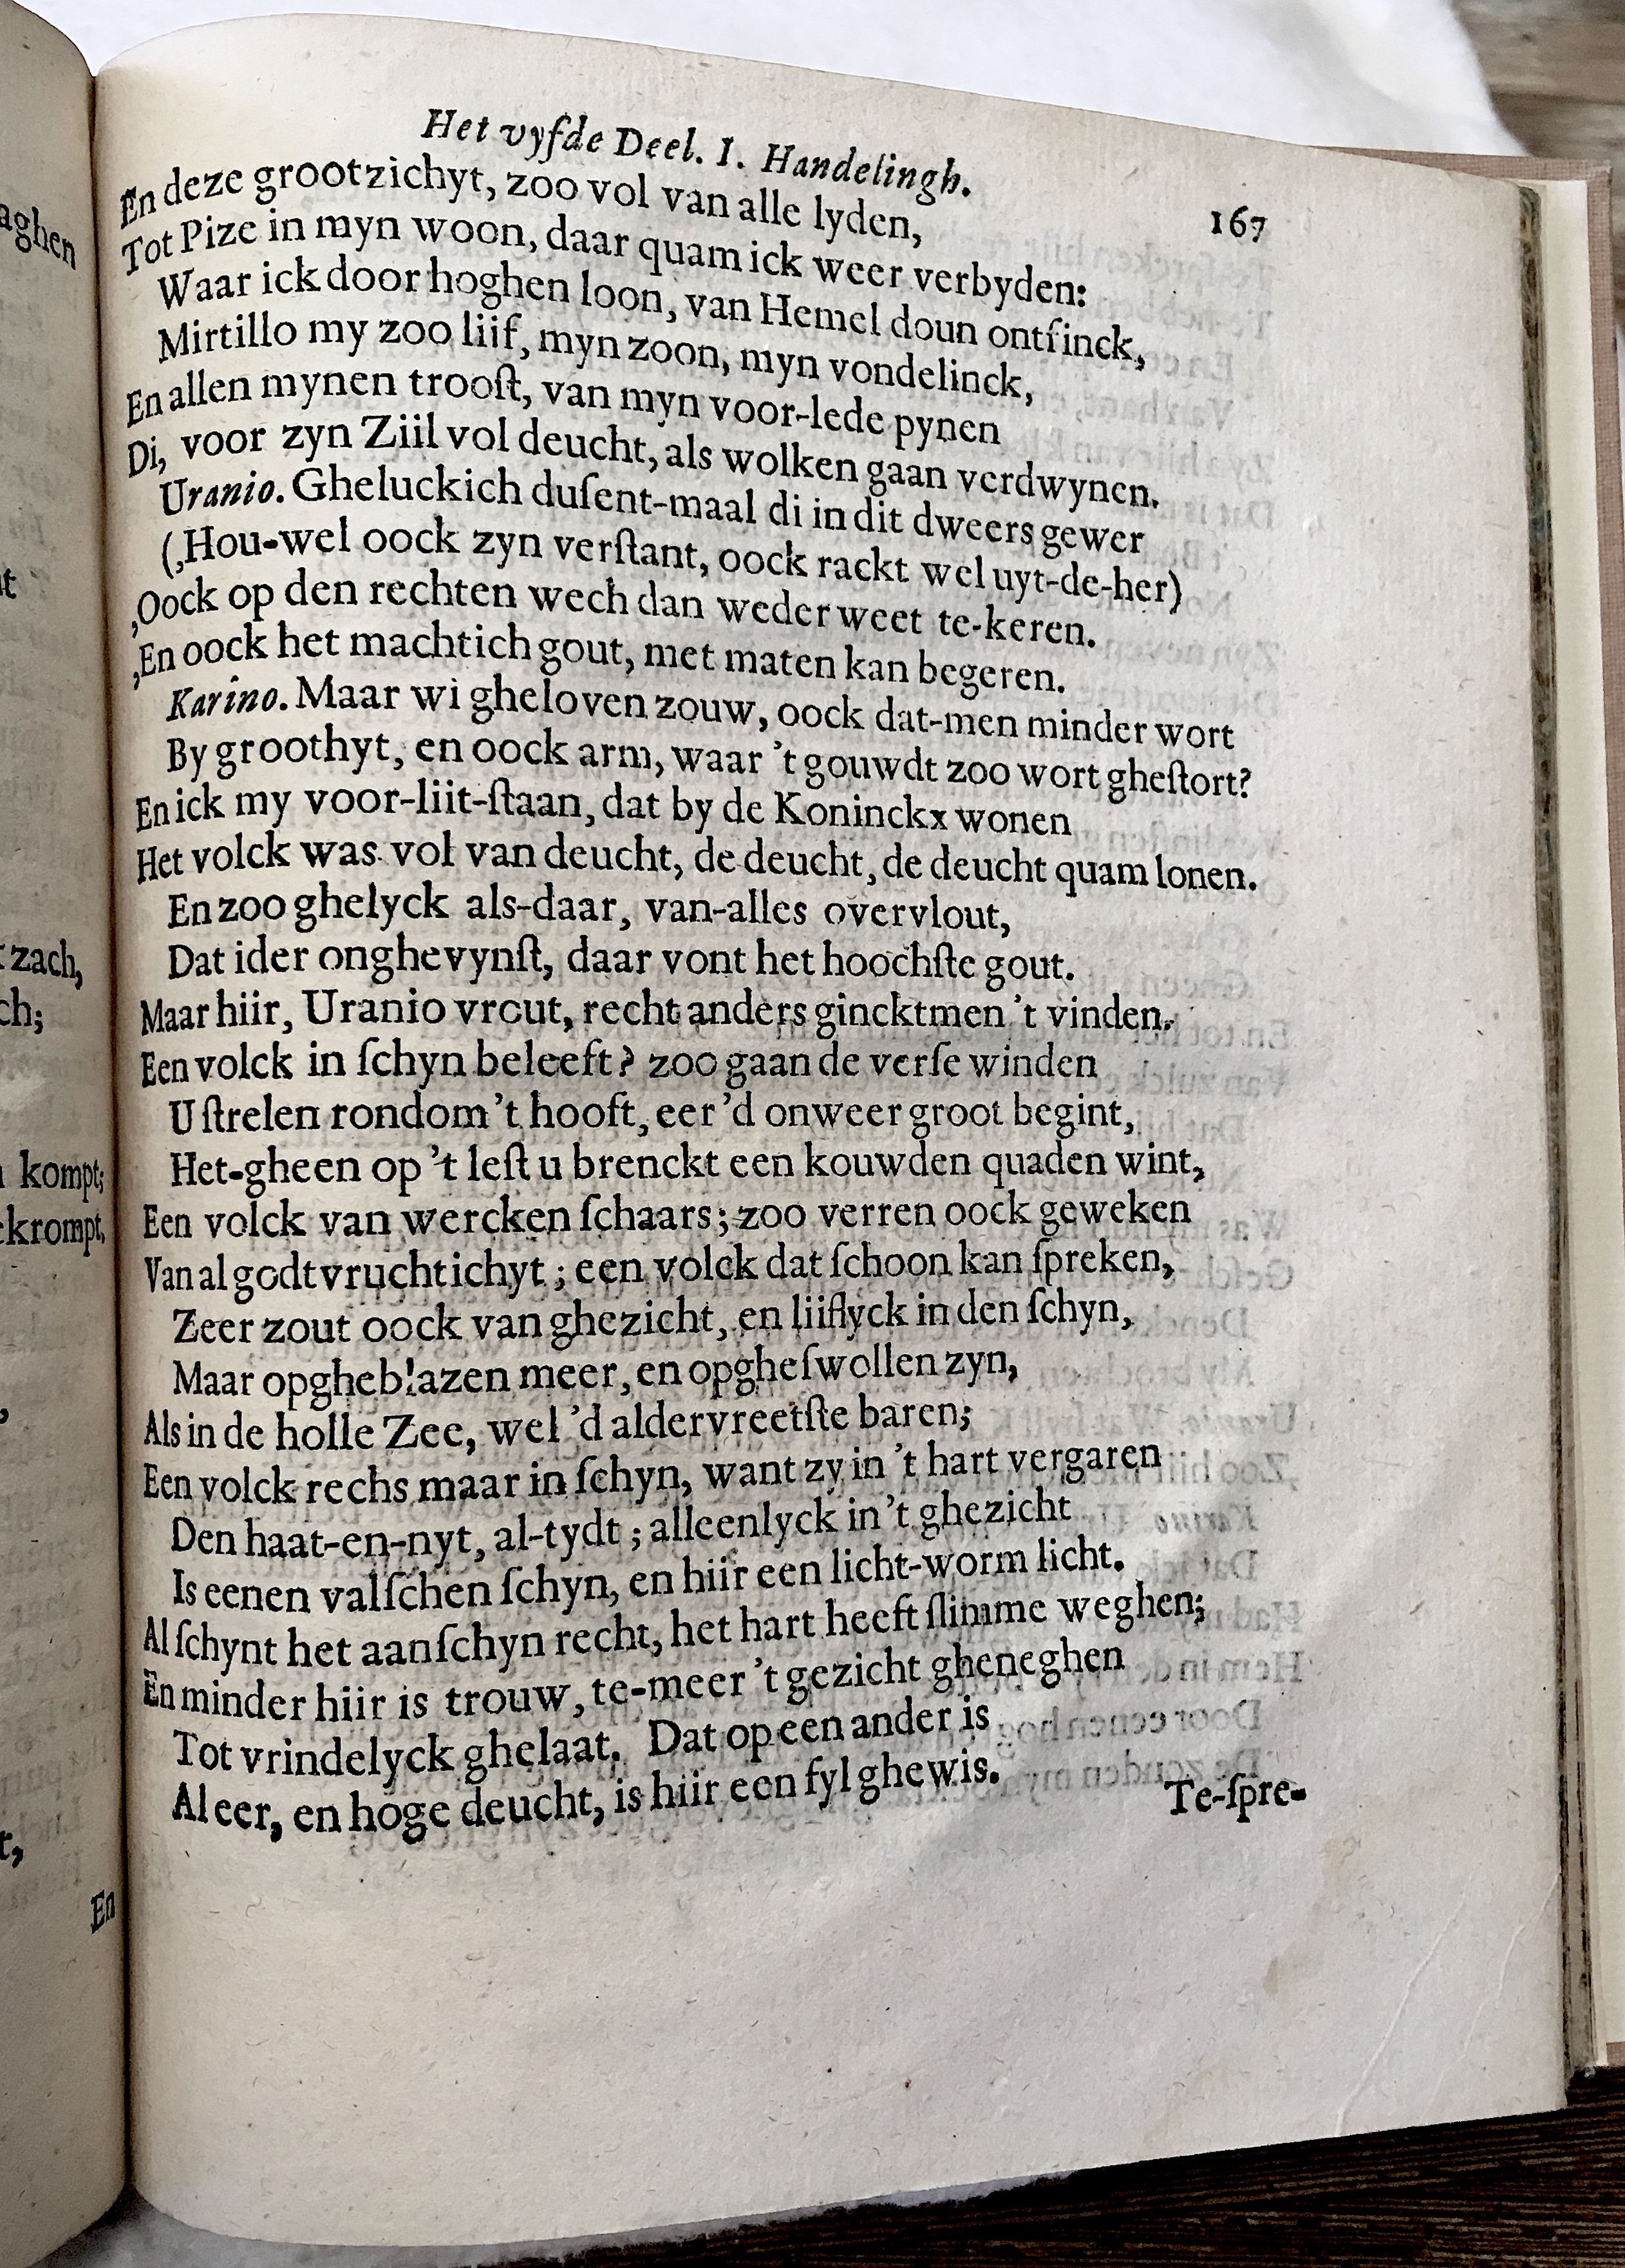 Het vyfde Deel. I. Handelingh.
167
En deze grootzichyt, zoo vol van alle lyden,
Tot Pize in myn woon, daar quam ick weer verbyden:
Waar ick door hoghen loon, van Hemel doun ontfinck,
Mirtillo my zoo liif, myn zoon, myn vondelinck,
En allen mynen trooſt, van myn voor-lede pynen
Di, voor zyn Ziil vol deucht, als wolken gaan verdwynen.
Uranio. Gheluckich duſent-maal di in dit dweers gewer
(,Hou-wel oock zyn verſtant, oock rackt wel uyt-de-her)
,Oock op den rechten wech dan weder weet te-keren.
,En oock het machtich gout, met maten kan begeren.
Karino. Maar wi gheloven zouw, oock dat-men minder wort
By groothyt, en oock arm, waar 't gouwdt zoo wort gheſtort?
En ick my voor-liit-ſtaan, dat by de Koninckx wonen
Het volck was vol van deucht, de deucht, de deucht quam lonen.
En zoo ghelyck als-daar, van-alles overvlout,
Dat ider onghevynſt, daar vont het hoochſte gout.
Maar hiir, Uranio vrout, recht anders gincktmen 't vinden.
Een volck in ſchyn beleeft? zoo gaan de verſe winden
U ſtrelen rondom 't hooft, eer 'd onweer groot begint,
Het-gheen op 't leſt u brenckt een kouwden quaden wint,
Een volck van wercken ſchaars; zoo verren oock geweken
Van al godtvruchtichyt; een volck dat ſchoon kan ſpreken,
Zeer zout oock van ghezicht, en liiflyck in den ſchyn,
Maar opgheblazen meer, en opgheſwollen zyn,
Als in de holle Zee, wel 'd aldervreetſte baren;
Een volck rechs maar in ſchyn, want zy in 't hart vergaren
Den haat-en-nyt, al-tydt; alleenlyck in 't ghezicht
Is eenen valſchen ſchyn, en hiir een licht-worm licht.
Al ſchynt het aanſchyn recht, het hart heeft ſlimme weghen;
En minder hiir is trouw, te-meer 't gezicht gheneghen
Tot vrindelyck ghelaat. Dat op een ander is
Al eer, en hoge deucht, is hiir een fyl ghewis.
Te-ſpre-
aghen
zach,
ch;
kompt;
krompt,
En